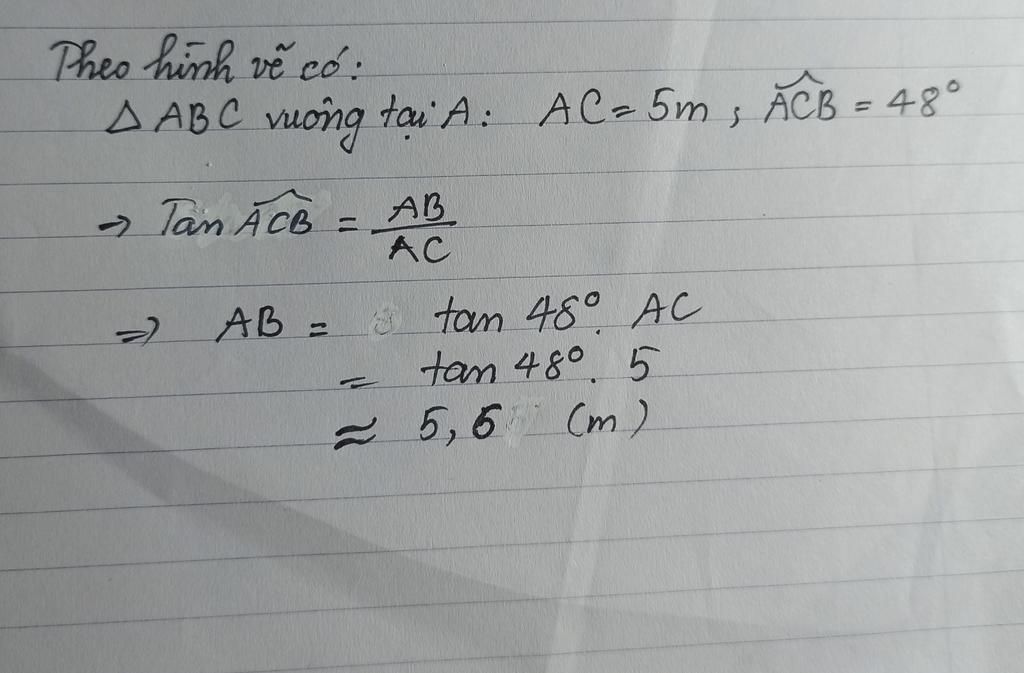 Theo hình vẽ có:
Δ ABC vuông tại A: AC = 5m ; $\widehat{ACB}$ = 48°
→ Tan $\widehat{ACB}$ = $\frac{AB}{AC}$
⇒ AB = tan 48°. AC
= tan 48°. 5
≈ 5,6 (m)